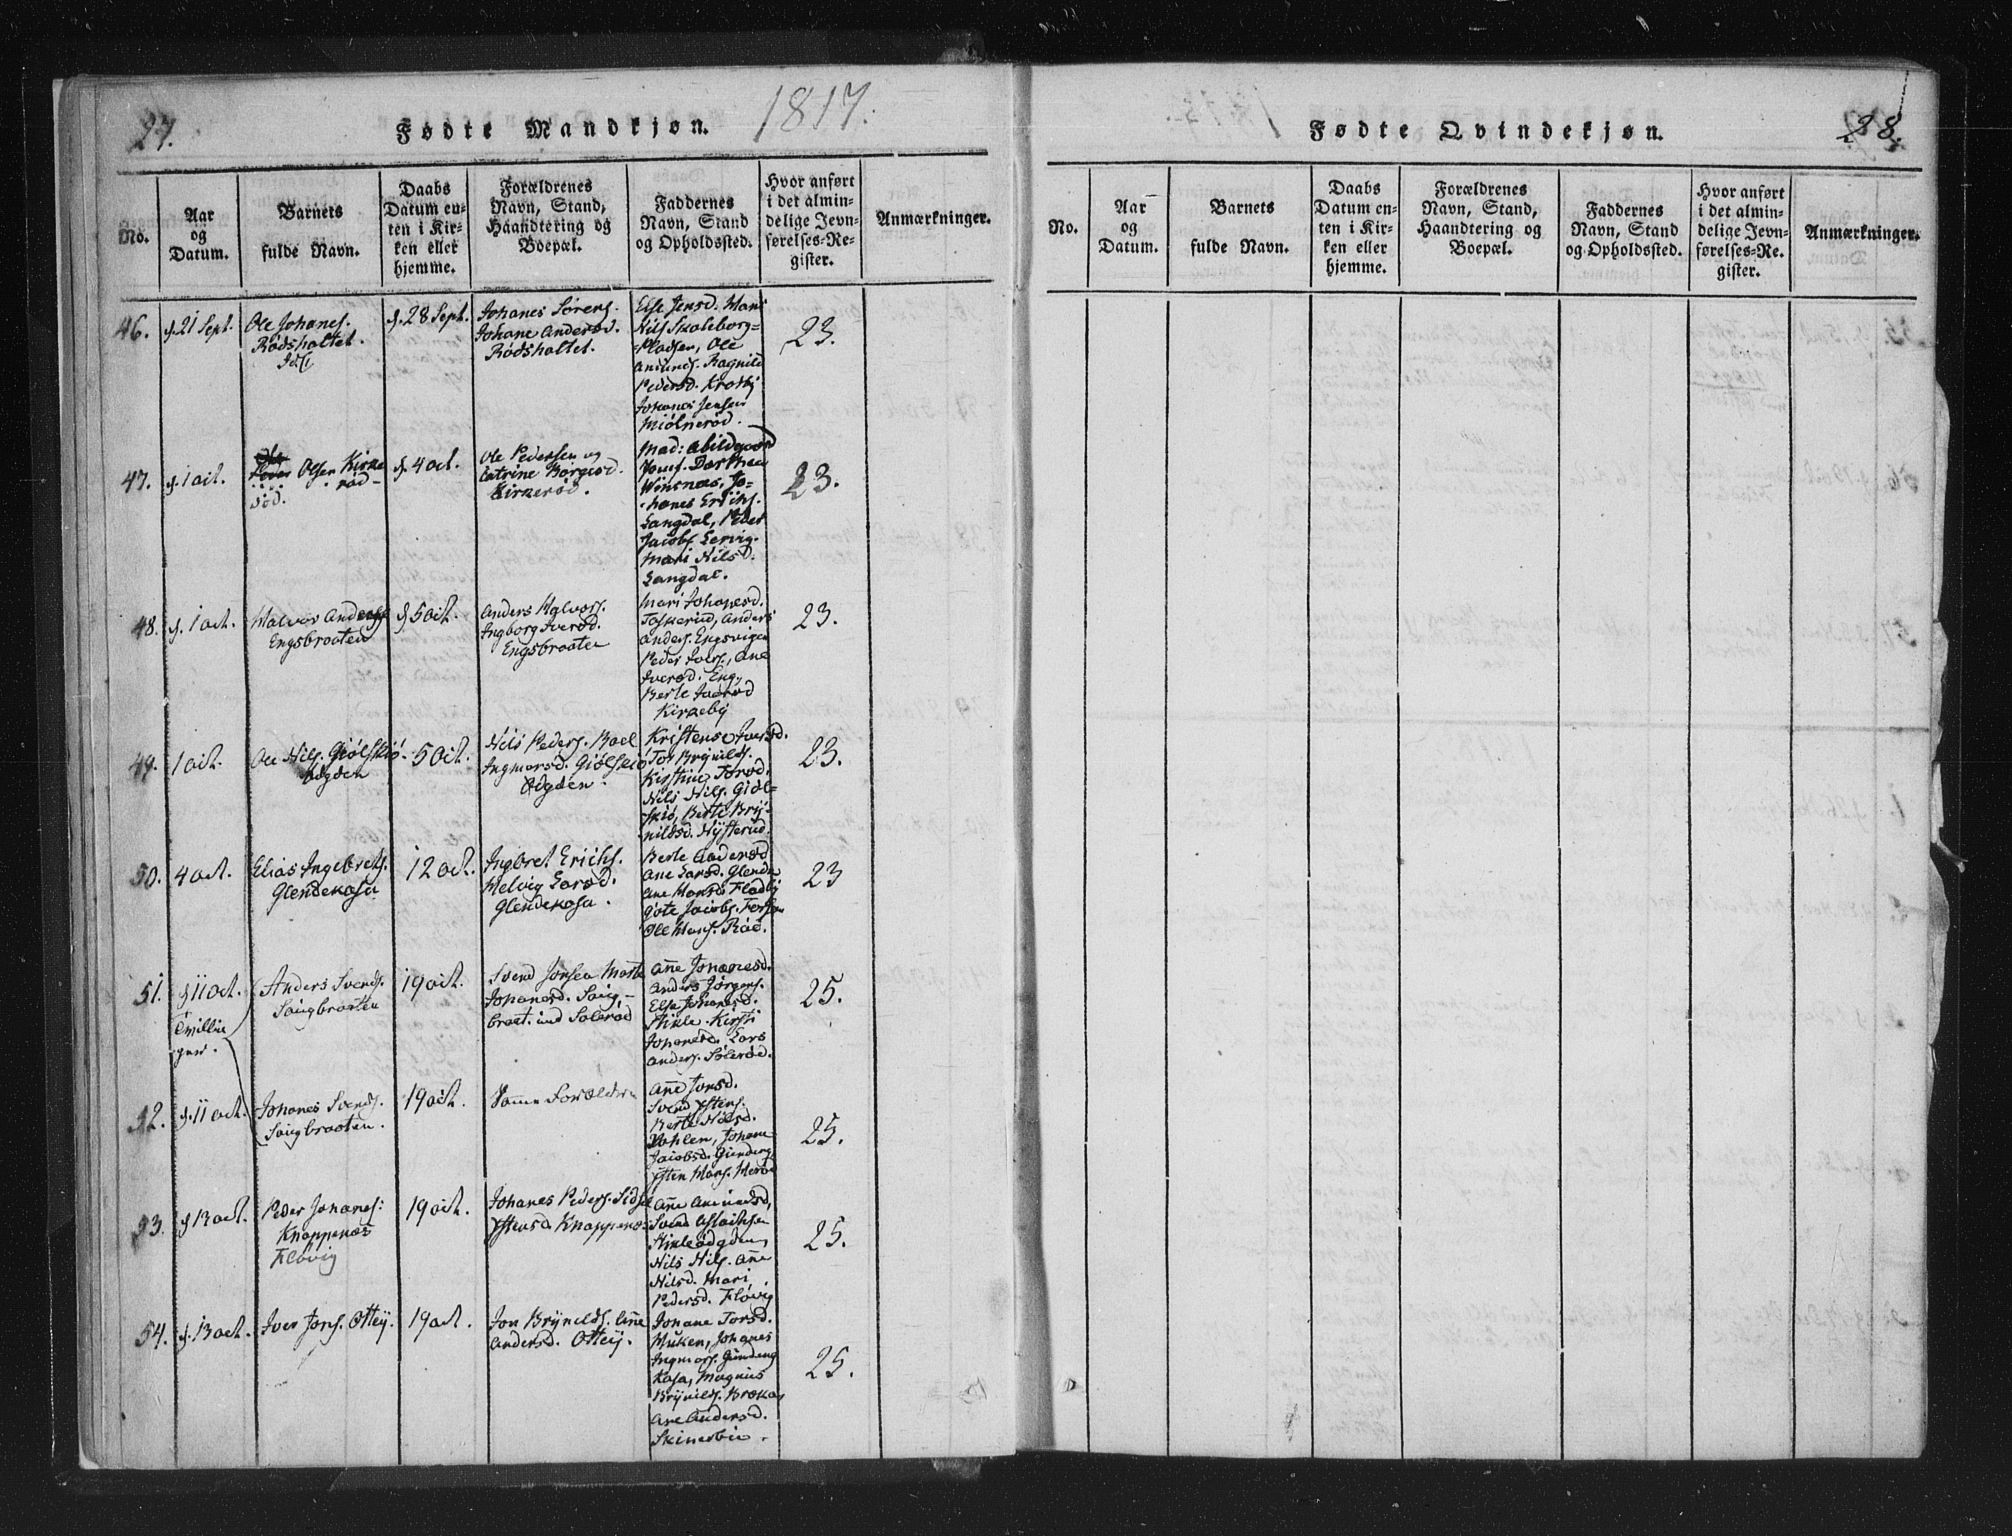 27.
Fødte Mandkjøn.
1817.
No.
Aar
og
Datum.
Barnets
fulde Navn.
Daabs
Datum en-
ten i Kir-
ken eller
hjemme.
Forældrenes
Navn, Stand,
Haandtering og
Boepæl.
Faddernes
Navn, Stand
og Opholdssted.
Hvor anført
i det almin-
delige Jevn-
førelses-Re-
gister.
Anmærkninger.
46.
d. 21 Sept.
Ole Johanes.
Rødsholtet.
d. 28 Sept.
Johanes Sørens.
Johane Andersd.
Rødsholtet.
Else Jensd. Hans
Nils Skaleborg-
Pladsen, Ole
Amunds. Ragnild
Pedersd. Krosbÿ
Johanes Jensen
Miølnerød.
23.
47.
d. 1 oct.
Olsen Kirke
rød
d. 4 oct.
Ole Pedersen og
Catrine Børgesd.
Kirkerød.
Mad: Abildgaard
Jomf. Dorthea
Wiksnæs, Jo-
hanes Erichs.
Langdal, Peder
Jacobs. Lervig.
Mari Nilsd.
Langdal.
23.
48.
d. 1 oct.
Halvor Anders
Engsbraaten
d. 5 oct.
Anders Halvors.
Ingborg Iversd.
Engsbraaten
Mari Johanesd.
Toskerud, Anders
Anders. Engsvigen
Peder Ivers., Ane
Iversd. Eng,
Berte Iversd
Kirkebÿ
23.
49.
1 oct.
Ole Nils. Giølskiø
Ødgden
5 oct.
Nils Peders. Boel
Ingmarsd. Giølskiø
Ødgden.
Kristense Iversd.
Tor Brÿnilds.
Kirstine Torsd.
Nils Nils. Giøl-
skiø, Berte Brÿ-
nildsd. Nÿsterud.
23.
50.
4 oct.
Elias Ingebrets.
Glendekasa
12 oct.
Ingbret Erichs.
Helvig Larsd.
Glendekasa.
Berte Andersd
Ane Larsd. Glende
Ane Hansd. Fladbÿ
Gote Jacobs. Torson
Ole Hans. Rød.
23
51.
d 11 oct.
Tvillin
ger.
Anders Svends.
Saugbraaten
19 oct.
Svend Jonsen Marte
Johanesd. Saug-
braat. und Solerød
Ane Johanesd.
Anders Jørgens.
Else Johanesd.
Stikle. Kirsti
Johanesd. Lars
Anders. Sølerød.
25.
52.
d. 11 oct.
Johanes Svends.
Saugbraaten.
19 oct.
Samme Forældre
Ane Jonsd.
Svend Ÿstens.
Berte Nilsd.
Dahlen, Johane
Jacobsd. Gunderg
Ÿsten Hans. Herød
25.
53.
d 13 oct.
Peder Johanes:
Knappenæs
Fløvig
19 oct.
Johanes Peders. Sidsel
Ÿstensd. Knappenæs
Ane Amundsd,
Svend Aslachsen
Stikleødgden,
Nils Nils. Ane
Nilsd. Mari
Pedersd. Fløvig
25.
54.
d. 13 oct.
Iver Jons. Otteÿ.
19 oct.
Jon Brÿnilds. Ane
Andersd. Otteÿ.
Johane Torsd.
Muken, Johanes
Ingmars. Gundeng
Kasa, Magnus
Brÿnilds. Brekas
Ane Andersd.
Skinerbue.
25.
28.
Fødte Qvindekjøn.
No.
Aar
og
Datum.
Barnets
fulde Navn.
Daabs
Datum en-
ten i Kir-
ken eller
hjemme.
Forældrenes
Navn, Stand,
Haandtering og
Boepæl.
Faddernes
Navn, Stand
og Opholdssted.
Hvor anført
i det almin-
delige Jevn-
førelses-Re-
gister.
Anmærkninger.